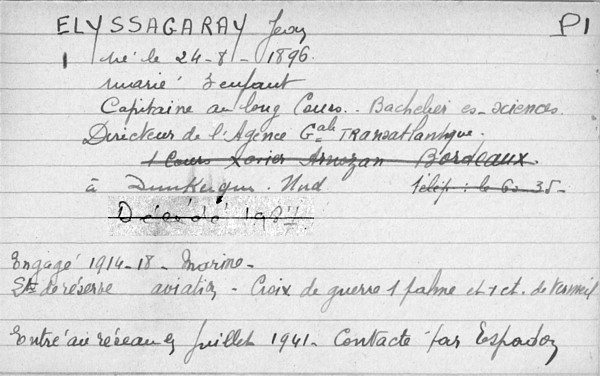 ELYSSAGARAY Jean P1
né le 24-8-1896
marié 3 enfant
Capitaine au long Cours.. Bachelier es-sciences.
Directeur de l'Agence Gale TRANSATLANTIQUE.
1 Cours Xavier Arnozan Bordeaux.
à Dunkerque. Nord télép : le 60 35-
Décédé 198
Engagé 1914-18- Marine-
de réserve aviation - Croix de guerre 1 palme et 1 et. de Vermeil
Entré au réseau en Juillet 1941- Contacté par Espadon